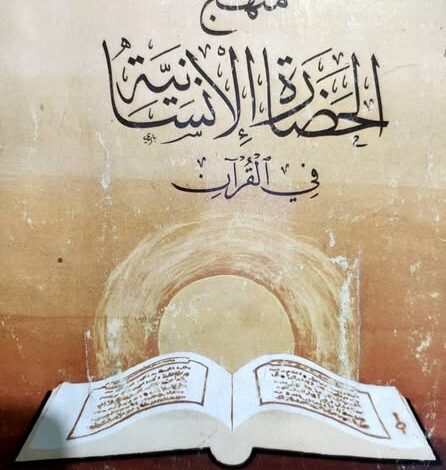 منهج
الحَضَارَةِ الإِنْسَانِيَّةِ
فِي القُرْآنِ